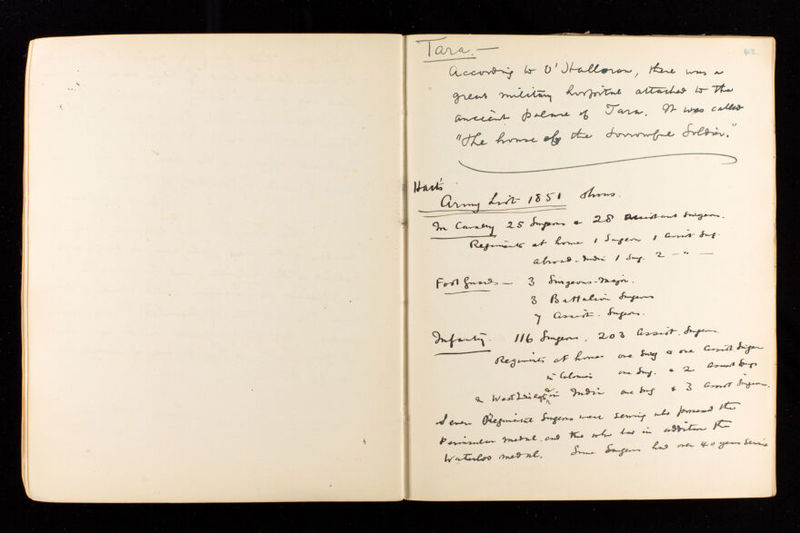 42
Tara. —
According to O'Halloran, there was a
great military hospital attached to the
ancient palace of Tara. It was called
"the house of the sorrowful Soldier."
Hart's
Army List 1851 shows.
In Cavalry 25 Surgeons & 28 Assistant Surgeons.
Regiments at home 1 Surgeon 1 Assist Surg.
abroad - India 1 Surg. 2 — " —
Foot Guards — 3 Surgeons-Major.
3 Battalion Surgeons
7 Assist. Surgeons.
Infantry. 116 Surgeons. 203 Assist. Surgeons
Regiments at home one Surg & one Assist Surgeon
in Colonies one Surg. & 2 Assist Surgs
& West Indies & in India one Surg & 3 Assist Surgeons.
Seven Regimental Surgeons were serving who possessed the
Peninsular medal and two who had in addition the
Waterloo medal. Some Surgeons had over 40 years service